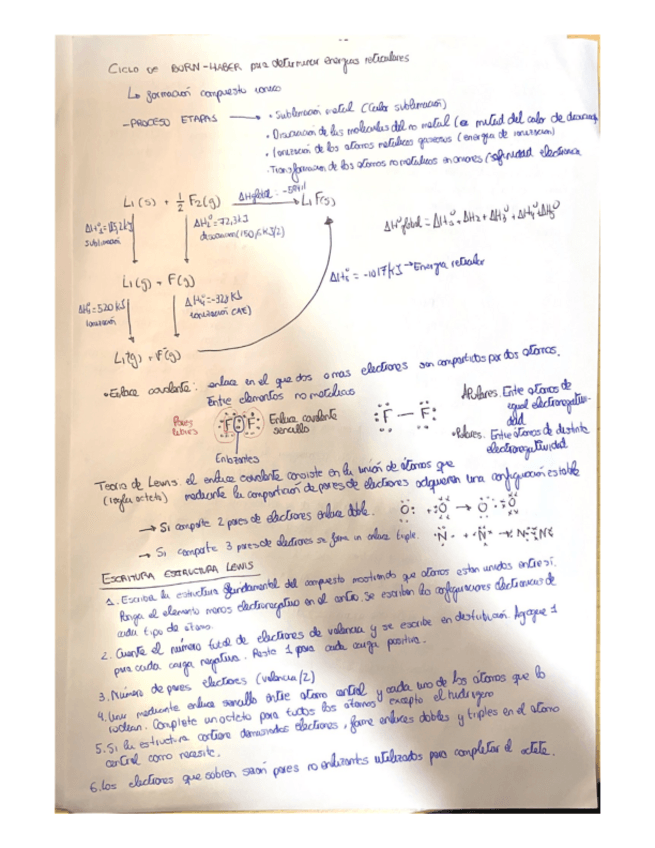 CICLO DE BURN-HABER para determinar energías reticulares
↳ formación compuesto iónico
-PROCESO ETAPAS → • Sublimación metal (calor sublimación)
• Disociación de las moléculas del no metal (es mitad del calor de
• Ionización de los átomos metálicos gaseosos (energía de ionización)
Transformación de los átomos no metálicos en aniones (afinidad electrónica
Li(s) + 1/2 F2(g) → LiF(s)
ΔH global:
sublimación
ΔH2°=72,3kJ
disociación (150,6 kJ/2)
ΔH°global = ΔH1° + ΔH2 + ΔH3° + ΔH4° + ΔH5°
Li(g) + F(g)
ΔH5° = -1017kJ → Energía reticular
ΔH3°=520 kJ
Ionización
ΔH4°=-328 kJ
Ionización (AE)
Li+(g) + F-(g)
• Enlace covalente: enlace en el que dos o mas electrones son compartidos por dos átomos.
Entre elementos no metálicos
Pares libres
F F
Enlace covalente sencillo
Enlazantes
F — F
Apolares. Entre átomos de igual electronegatividad
• Polares. Entre átomos de distinta electronegatividad
Teoría de Lewis: el enlace covalente consiste en la unión de átomos que
(regla octeto) mediante la compartición de pares de electrones adquieren una configuración estable
→ Si comparte 2 pares de electrones enlace doble. O + O → O O
→ Si comparte 3 pares de electrones se forma un enlace triple. N + N → N N
ESCRITURA ESTRUCTURA LEWIS
1. Escriba la estructura fundamental del compuesto mostrando que átomos estan unidos entre sí.
Ponga el elemento menos electronegativo en el centro. Se escriben las configuraciones electrónicas de
cada tipo de átomo.
2. Cuente el número total de electrones de valencia y se escribe en distribución. Agregue 1
para cada carga negativa. Reste 1 para cada carga positiva.
3. Número de pares electrones (valencia/2)
4. Unir mediante enlace sencillo entre átomo central y cada uno de los átomos que lo
rodean. Complete un octeto para todos los átomos excepto el hidrógeno
5. Si la estructura contiene demasiados electrones, forme enlaces dobles y triples en el átomo
central como necesite.
6. Los electrones que sobren serán pares no enlazantes utilizados para completar el octete.